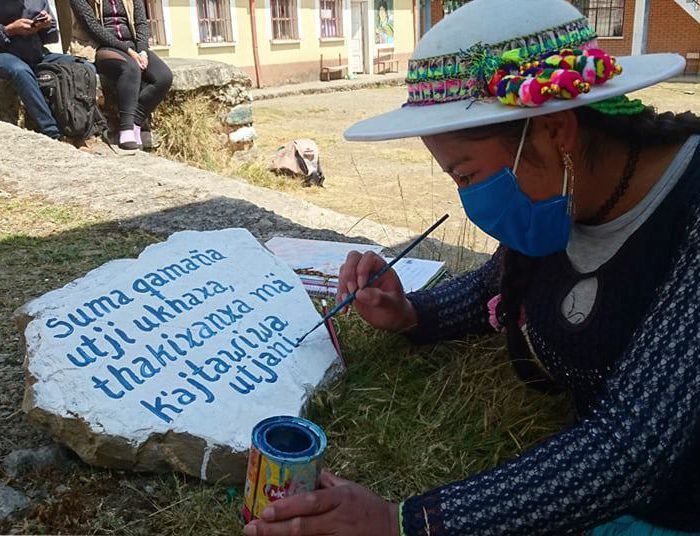 Suma qamaña
utji ukhaxa,
thakixanxa mä
K'ajtawiwa
utjani.